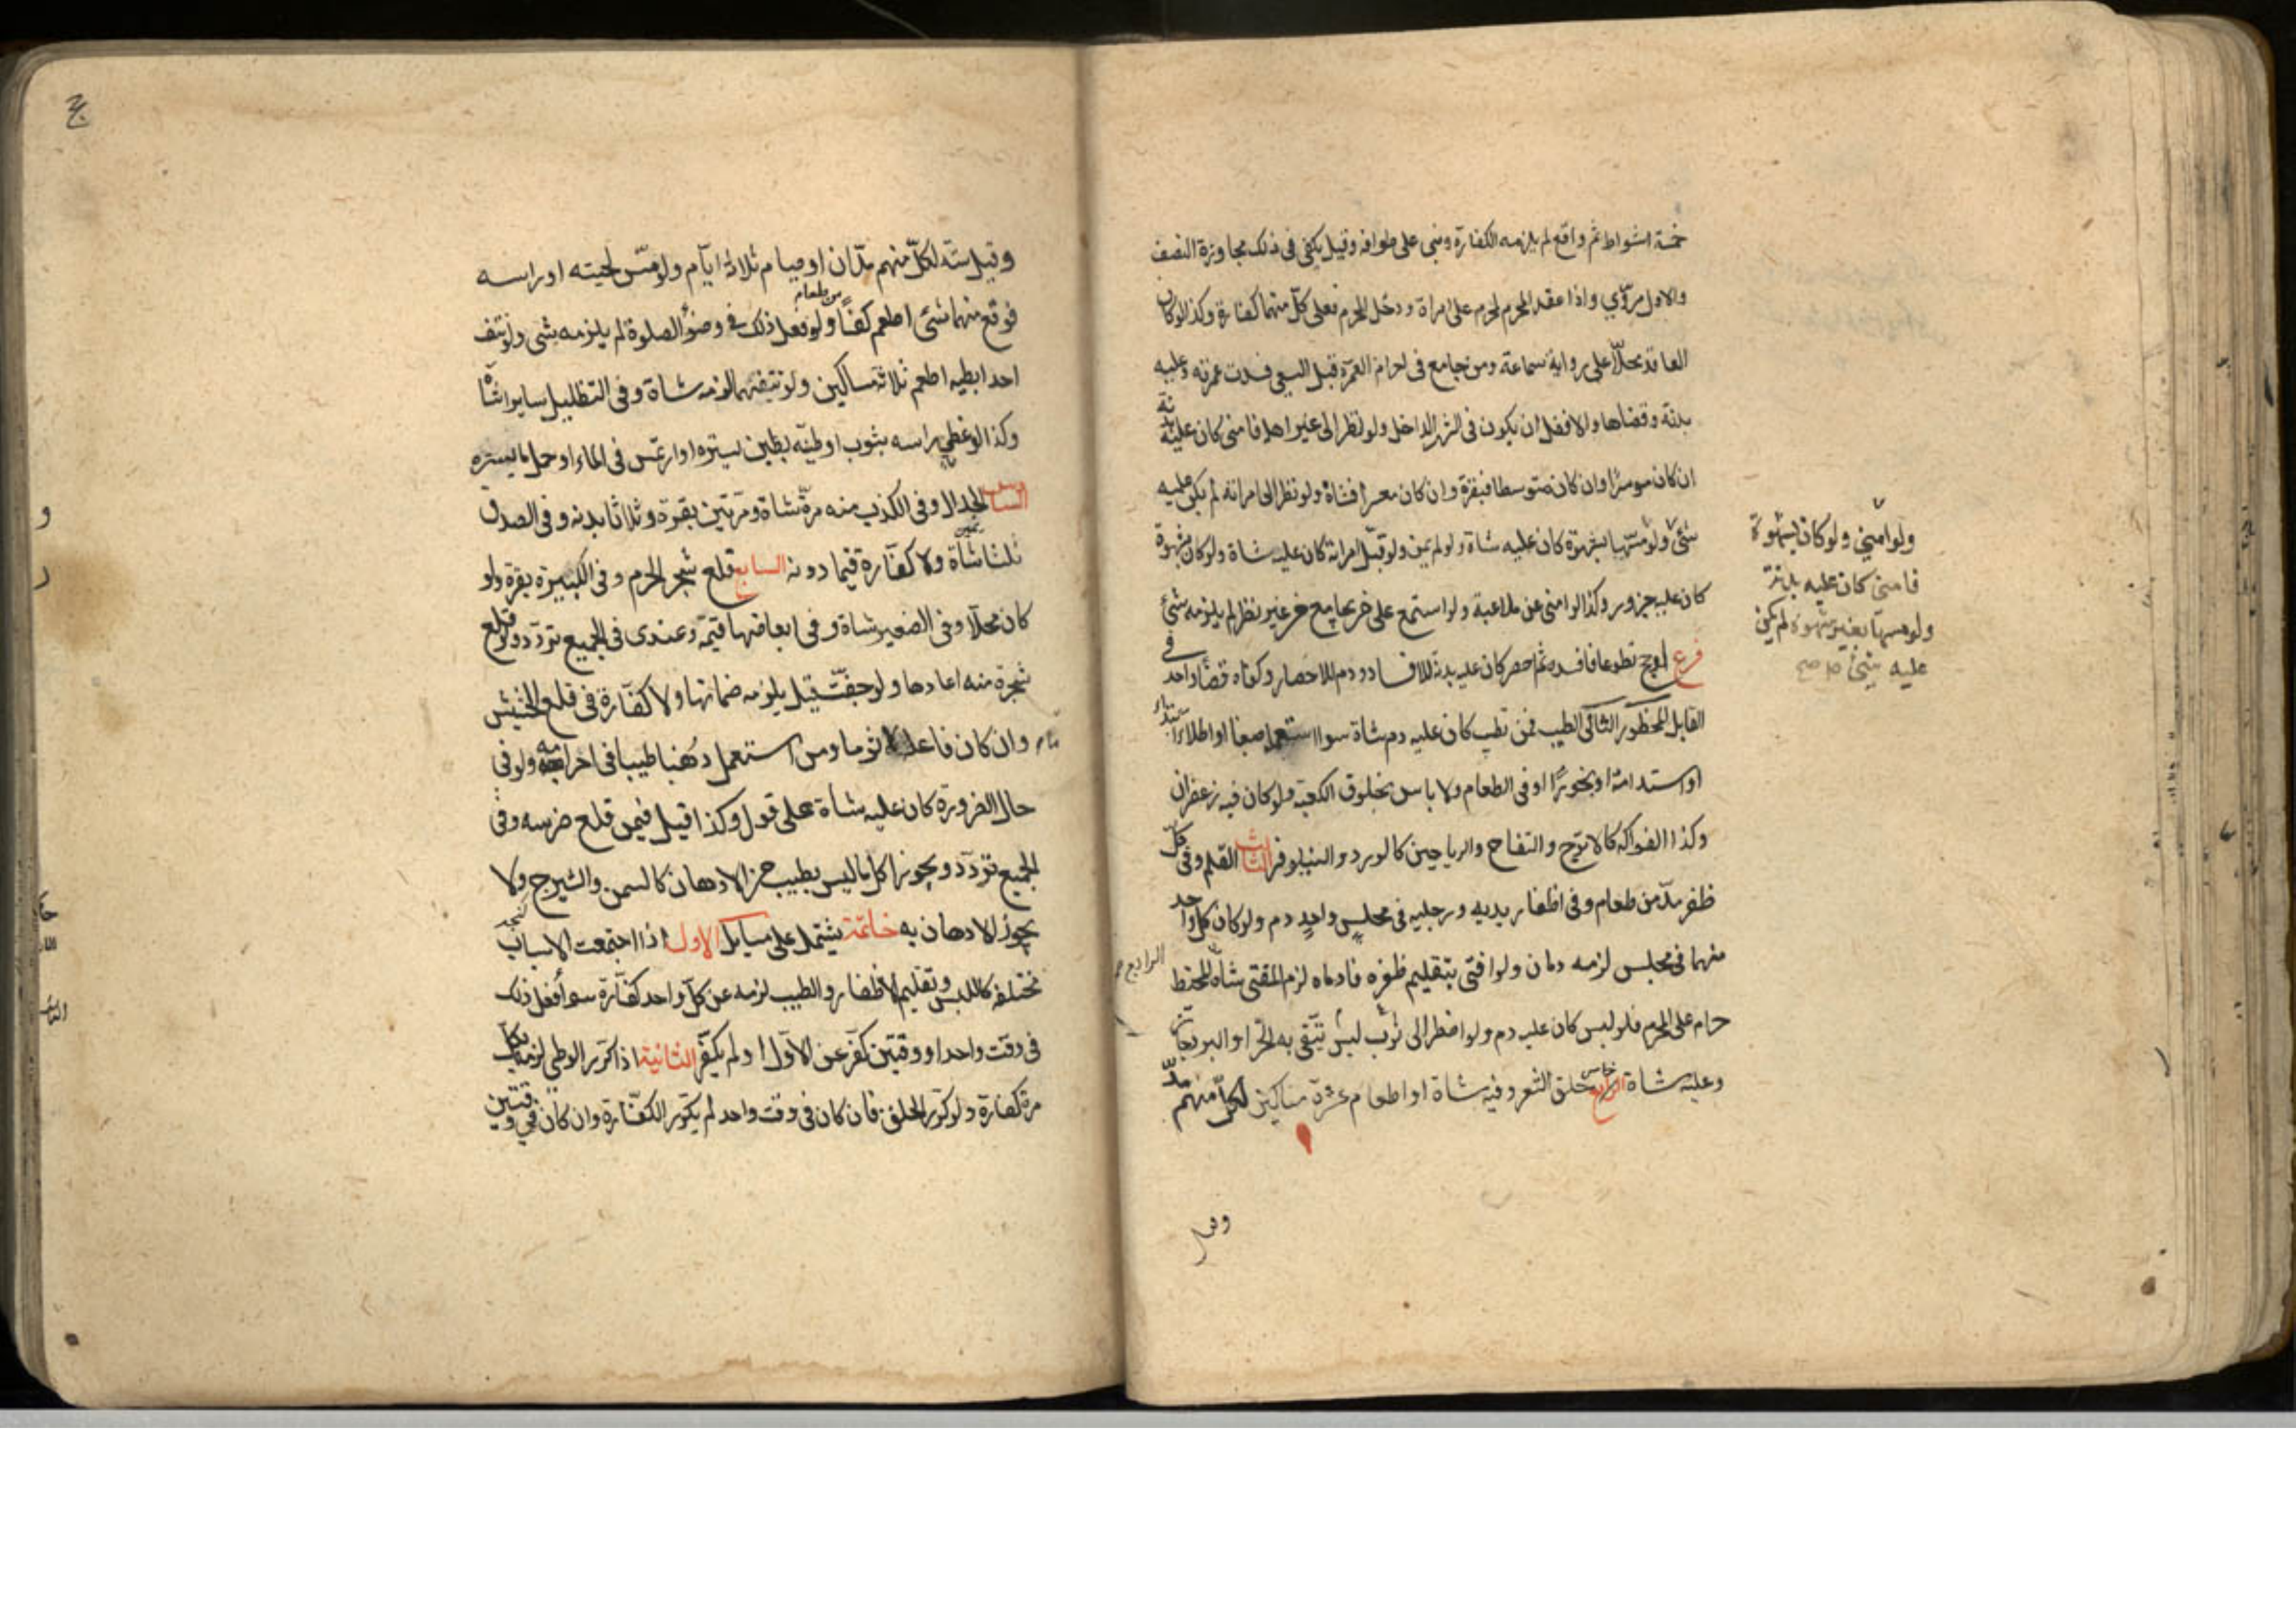 خمسة اشواط ثم واقع لم يلزمه الكفارة وبنى على طوافه وقيل يكفى فى ذلك مجاوزة النصف
والاول مروي واذا عقد المحرم لمحرم على امراة ودخل المحرم فعلى كل منهما كفارة وكذا لو كان
العاقد محلا على رواية سماعة ومن جامع فى احرام العمرة قبل السعى فسدت عمرته وعليه
بدنة وقضاها والافضل ان يكون فى الشهر الداخل ولو نظر الى غير اهله فامنى كان عليه بدنة
ان كان موسرا وان كان متوسطا فبقرة وان كان معسرا فشاة ولو نظر الى امراته لم يكن عليه
شئ ولو مسها بشهوة كان عليه شاة ولو لم يمن ولو قبل امراته كان عليه شاة ولو كان بشهوة
كان عليه جزور وكذا لو امنى عن ملاعبة ولو استمع على من يجامع من غير نظر لم يلزمه شئ
فرع لو حج تطوعا فافسده ثم احصر كان عليه بدنة للافساد ودم للاحصار وكفاه قضا واحد فى
القابل المحظور الثانى الطيب فمن تطيب كان عليه دم شاة سوا استعمله صبغا او اطلاء ابتداء
او استدامة او بخورا او فى الطعام ولا باس بخلوق الكعبة ولو كان فيه زعفران
وكذا الفواكه كالاترج والتفاح والرياحين كالورد والنيلوفر الثالث القلم وفى كل
ظفر مد من طعام وفى اظفار يديه ورجليه فى مجلس واحد دم ولو كان كل واحد
منهما فى مجلس لزمه دمان ولو افتى بتقليم ظفره فادماه لزم المفتى شاة المخيط
حرام على المحرم فلو لبس كان عليه دم ولو اضطر الى ثوب ليس يتقى به الحر او البرد جاز
وعليه شاة الرابع خامس حلق الشعر وفيه شاة او اطعام عشرة مساكين لكل منهم مد
ولو امنى ولو كان بشهوة
فامنى كان عليه بدنة
ولو مسها بغير شهوة لم يكن
عليه شئ صح
الرابع
وقيل
وقيل ستة لكل منهم مدان او صيام ثلاثة ايام ولو مس لحيته او راسه
فوقع منهما شئ اطعم كفا من طعام ولو فعل ذلك فى وضوء الصلوة لم يلزمه شى ولو نتف
احد ابطيه اطعم ثلاثة مساكين ولو نتفهما لزمه شاة وفى التظليل سايرا شاة
وكذا لو غطى راسه بثوب او طينه بطين يستره او ارتمس فى الماء او حمل ما يستره
السادس الجدال وفى الكذب منه مرة شاة ومرتين بقرة وثلاثا بدنه وفى الصدق
ثلثا شاة ولا كفارة فيما دونه السابع قلع شجر الحرم وفى الكبيرة بقرة ولو
كان محلا وفى الصغير شاة وفى ابعاضها قيمة وعندى فى الجميع تردد ولو قلع
شجرة منه اعادها ولو جفت قيل يلزمه ضمانها ولا كفارة فى قلع الحشيش
وان كان فاعله ماثوما ومن استعمل دهنا طيبا فى احرامه ولو فى
حال الضرورة كان عليه شاة على قول وكذا قيل فيمن قلع ضرسه وفى
الجميع تردد ويجوز اكل ما ليس بطيب من الادهان كالسمن والشيرج ولا
يجوز الادهان به خاتمة يشتمل على مسايل الاول اذا اجتمعت الاسباب
مختلفة كاللبس وتقليم الاظفار والطيب لزمه عن كل واحد كفارة سوا فعل ذلك
فى وقت واحد او وقتين كفر عن الاول او لم يكفر الثانية اذا كرر الوطى لزمه بكل
مرة كفارة ولو كرر الحلق فان كان فى وقت واحد لم يكرر الكفارة وان كان فى وقتين